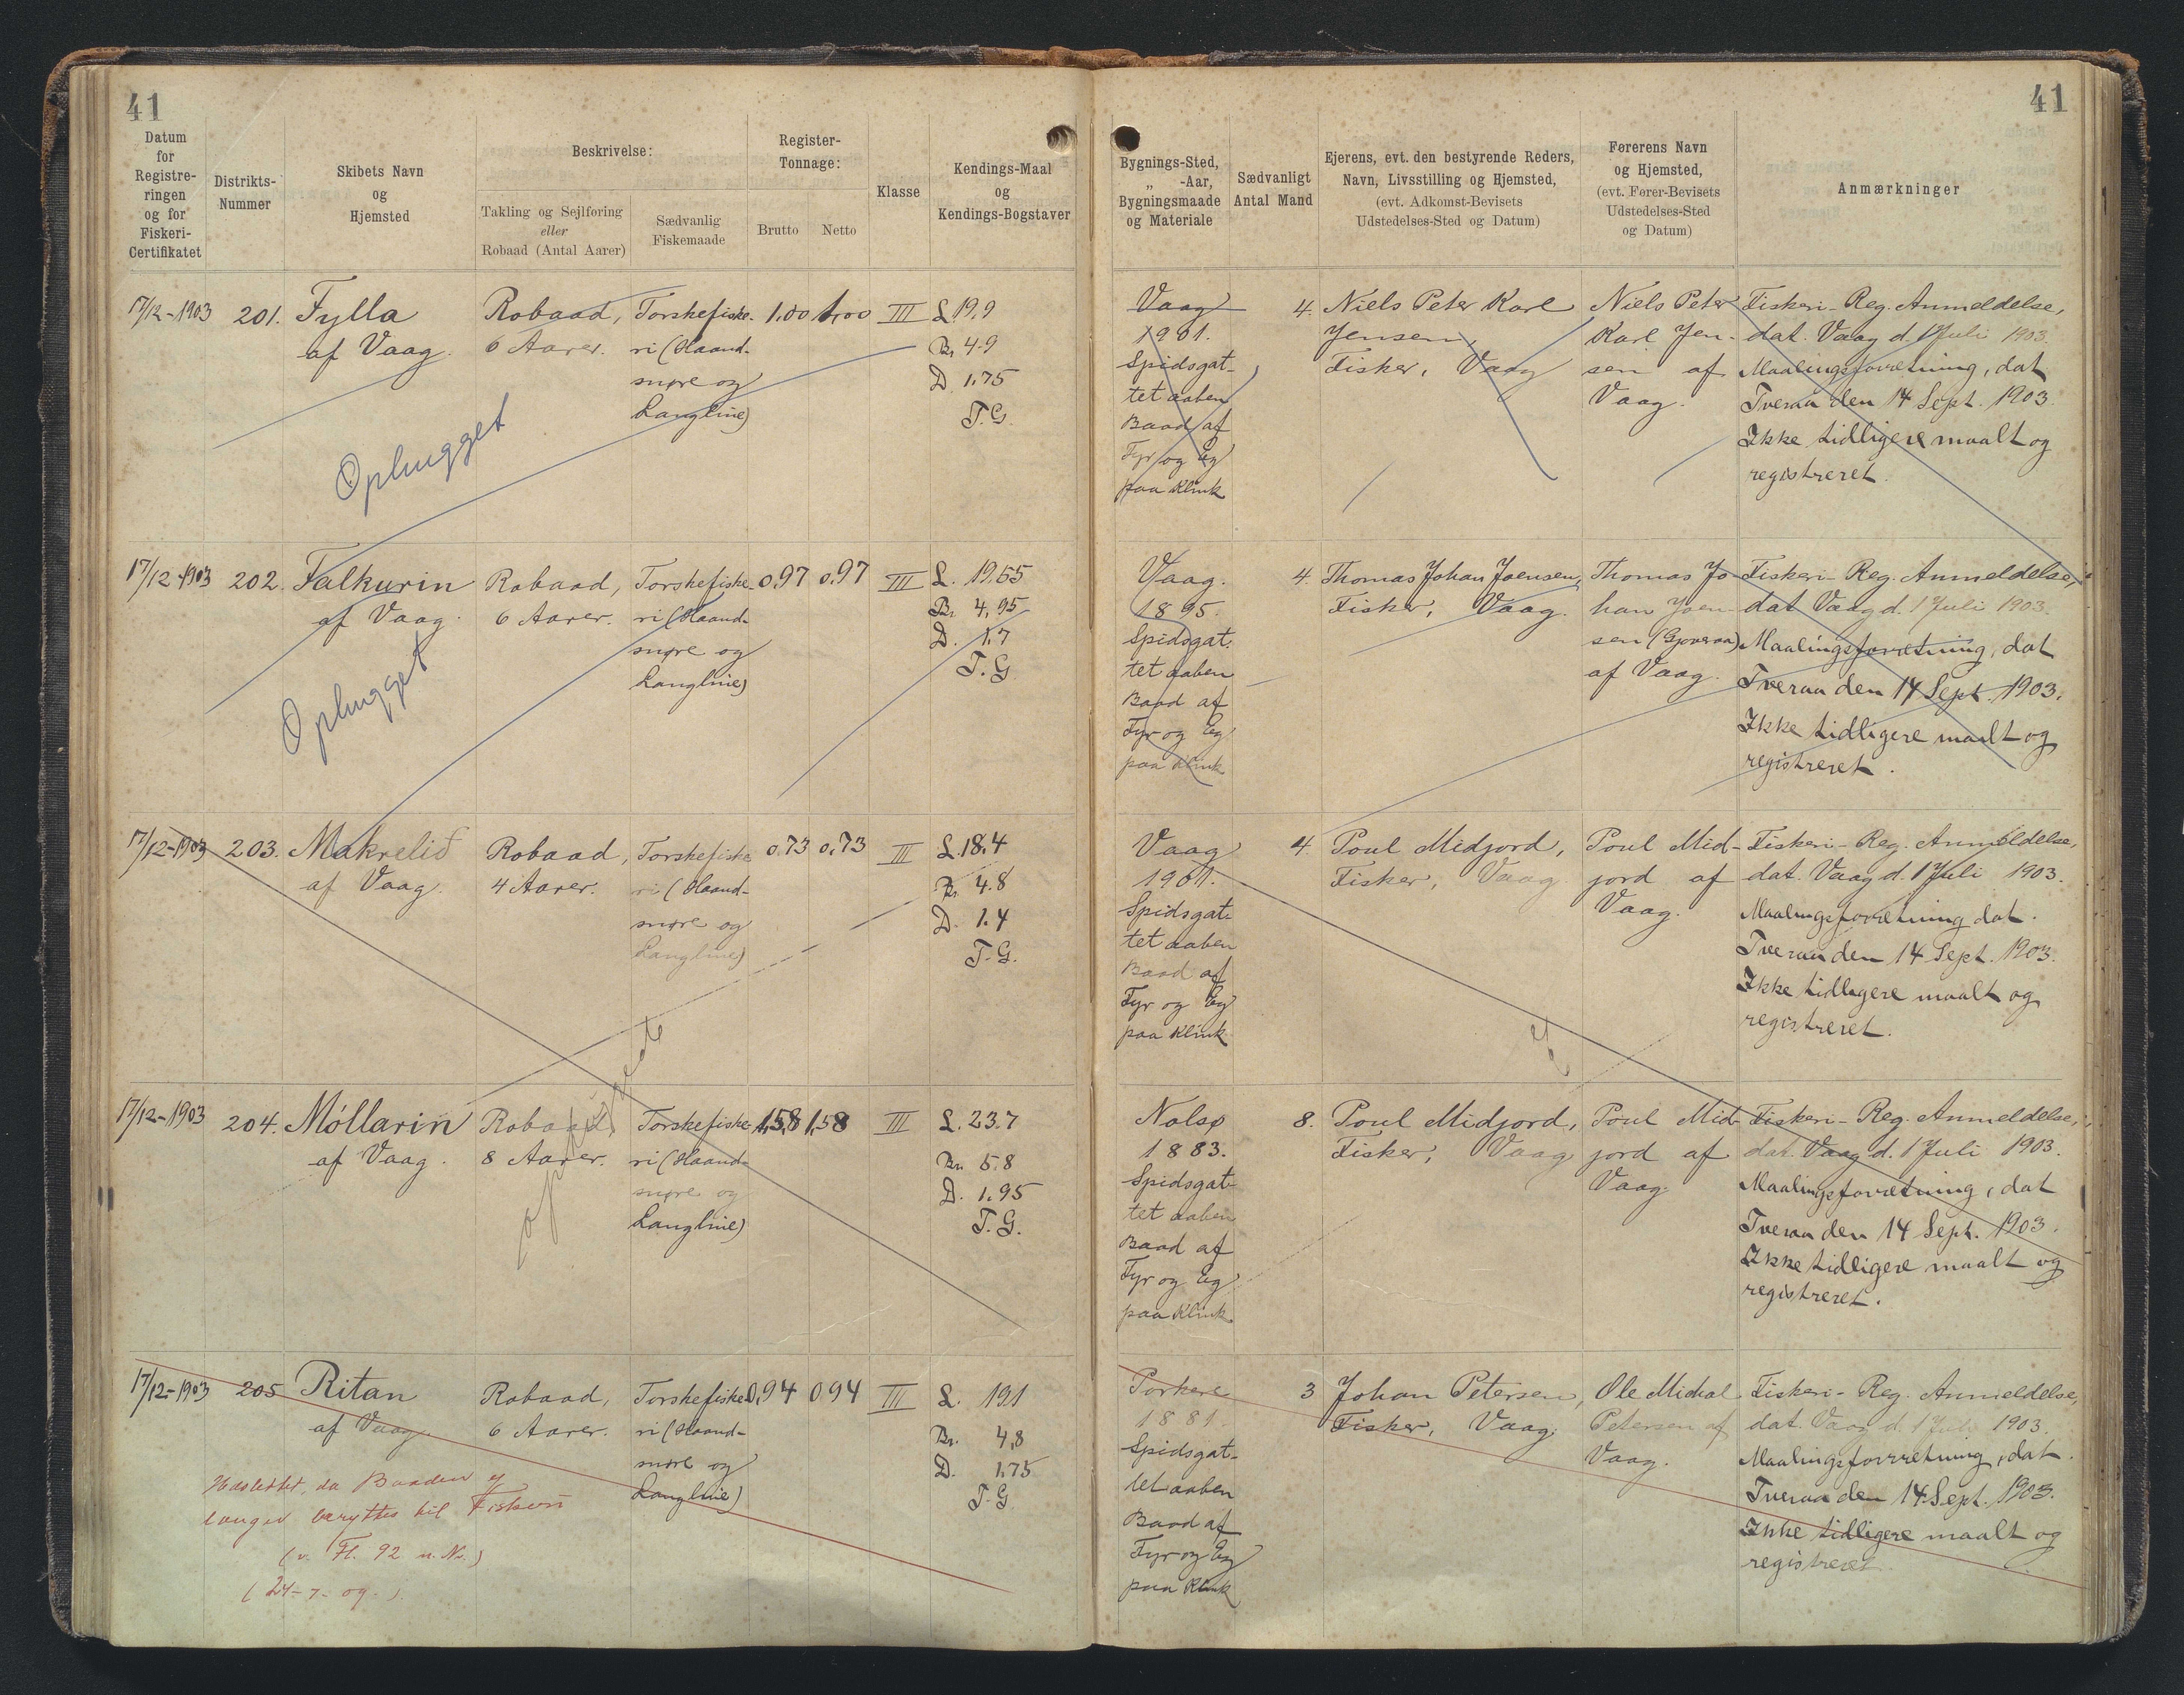 41
41
Datum
for
Registre-
ringen
og for
Fiskeri-
Certifikatet
Distrikts-
Nummer
Skibets Navn
og
Hjemsted
Beskrivelse:
Takling og Sejlføring
eller
Robaad (Antal Aarer)
Sædvanlig
Fiskemaade
Register-
Tonnage:
Brutto
Netto
Klasse
Kendings-Maal
og
Kendings-Bogstaver
Bygnings-Sted,
„ -Aar,
Bygningsmaade
og Materiale
Sædvanligt
Antal Mand
Ejerens, evt. den bestyrende Reders,
Navn, Livsstilling og Hjemsted,
(evt. Adkomst-Bevisets
Udstedelses-Sted og Datum)
Førerens Navn
og Hjemsted,
(evt. Fører-Bevisets
Udstedelses-Sted
og Datum)
Anmærkninger
17/12-1903
201.
Fylla
af Vaag.
Robaad,
6 Aarer.
Torskefiske-
ri (Haand-
snøre og
Langline)
1,00
1,00
III
L 19,9
Br 4.9
D 1.75
T.G.
Ophugget
Vaag
1901.
Spidsgat-
tet aaben
Baad af
Fyr og Eg
paa Klink
4.
Niels Peter Karl
Jensen,
Fisker, Vaag
Niels Peter
Karl Jen-
sen af
Vaag.
Fiskeri-Reg. Anmeldelse,
dat. Vaag d. 1 Juli 1903.
Maalingsforretning, dat
Tveraa den 14 Sept. 1903.
Ikke tidligere maalt og
registreret.
17/12-1903
202.
Falkurin
af Vaag.
Robaad,
6 Aarer.
Torskefiske-
ri (Haand-
snøre og
Langline)
0,97
0,97
III
L. 19,65
Br 4,95
D. 1.7
T.G
Ophugget
Vaag.
1895.
Spidsgat-
tet aaben
Baad af
Fyr og Eg
paa Klink
4.
Thomas Johan Joensen,
Fisker, Vaag.
Thomas Jo-
han Joen-
sen
af Vaag.
Fiskeri-Reg. Anmeldelse,
dat Vaag d. 1 Juli 1903.
Maalingsforretning, dat
Tveraa den 14 Sept. 1903.
Ikke tidligere maalt og
registreret.
17/12-1903
203.
Makrelið
af Vaag.
Robaad,
4 Aarer.
Torskefiske-
ri (Haand-
snøre og
Langline)
0,73
0,73
III
L. 18,4
Br 4.8
D. 1.4
T.G.
Vaag
1901.
Spidsgat-
tet aaben
Baad af
Fyr og Eg
paa Klink
4.
Poul Midjord,
Fisker, Vaag
Poul Mid-
jord af
Vaag.
Fiskeri-Reg. Anmeldelse,
dat. Vaag d. 1 Juli 1903.
Maalingsforretning dat.
Tveraa den 14 Sept. 1903.
Ikke tidligere maalt og
registreret.
17/12-1903
204.
Móllarin
af Vaag.
Robaad,
8 Aarer.
Torskefiske-
ri (Haand-
snøre og
Langline)
1,58
1,58
III
L. 23.7
Br. 5.8
D. 1.95
T.G.
Nolsø
1883.
Spidsgat-
tet aaben
Baad af
Fyr og Eg
paa Klink
8.
Poul Midjord,
Fisker, Vaag
Poul Mid-
jord af
Vaag.
Fiskeri-Reg. Anmeldelse,
dat. Vaag d. 1 Juli 1903.
Maalingsforretning, dat
Tveraa den 14 Sept. 1903.
Ikke tidligere maalt og
registreret.
17/12-1903
205
Ritan
af Vaag.
Robaad,
6 Aarer.
Torskefiske-
ri (Haand-
snøre og
Langline)
0,94
0 94
III
L. 19,1
Br. 4,8
D. 1.75
T.G
da Baaden ej
længer benyttes til Fiskeri
(v. Fl. 92 n. No.)
(24-7-09.)
Porkere
1881.
Spidsgat-
tet aaben
Baad af
Fyr og Eg
paa Klink
3
Johan Petersen,
Fisker, Vaag.
Ole Michal
Petersen af
Vaag.
Fiskeri-Reg. Anmeldelse,
dat. Vaag d. 1 Juli 1903.
Maalingsforretning, dat.
Tveraa den 14 Sept. 1903.
Ikke tidligere maalt og
registreret